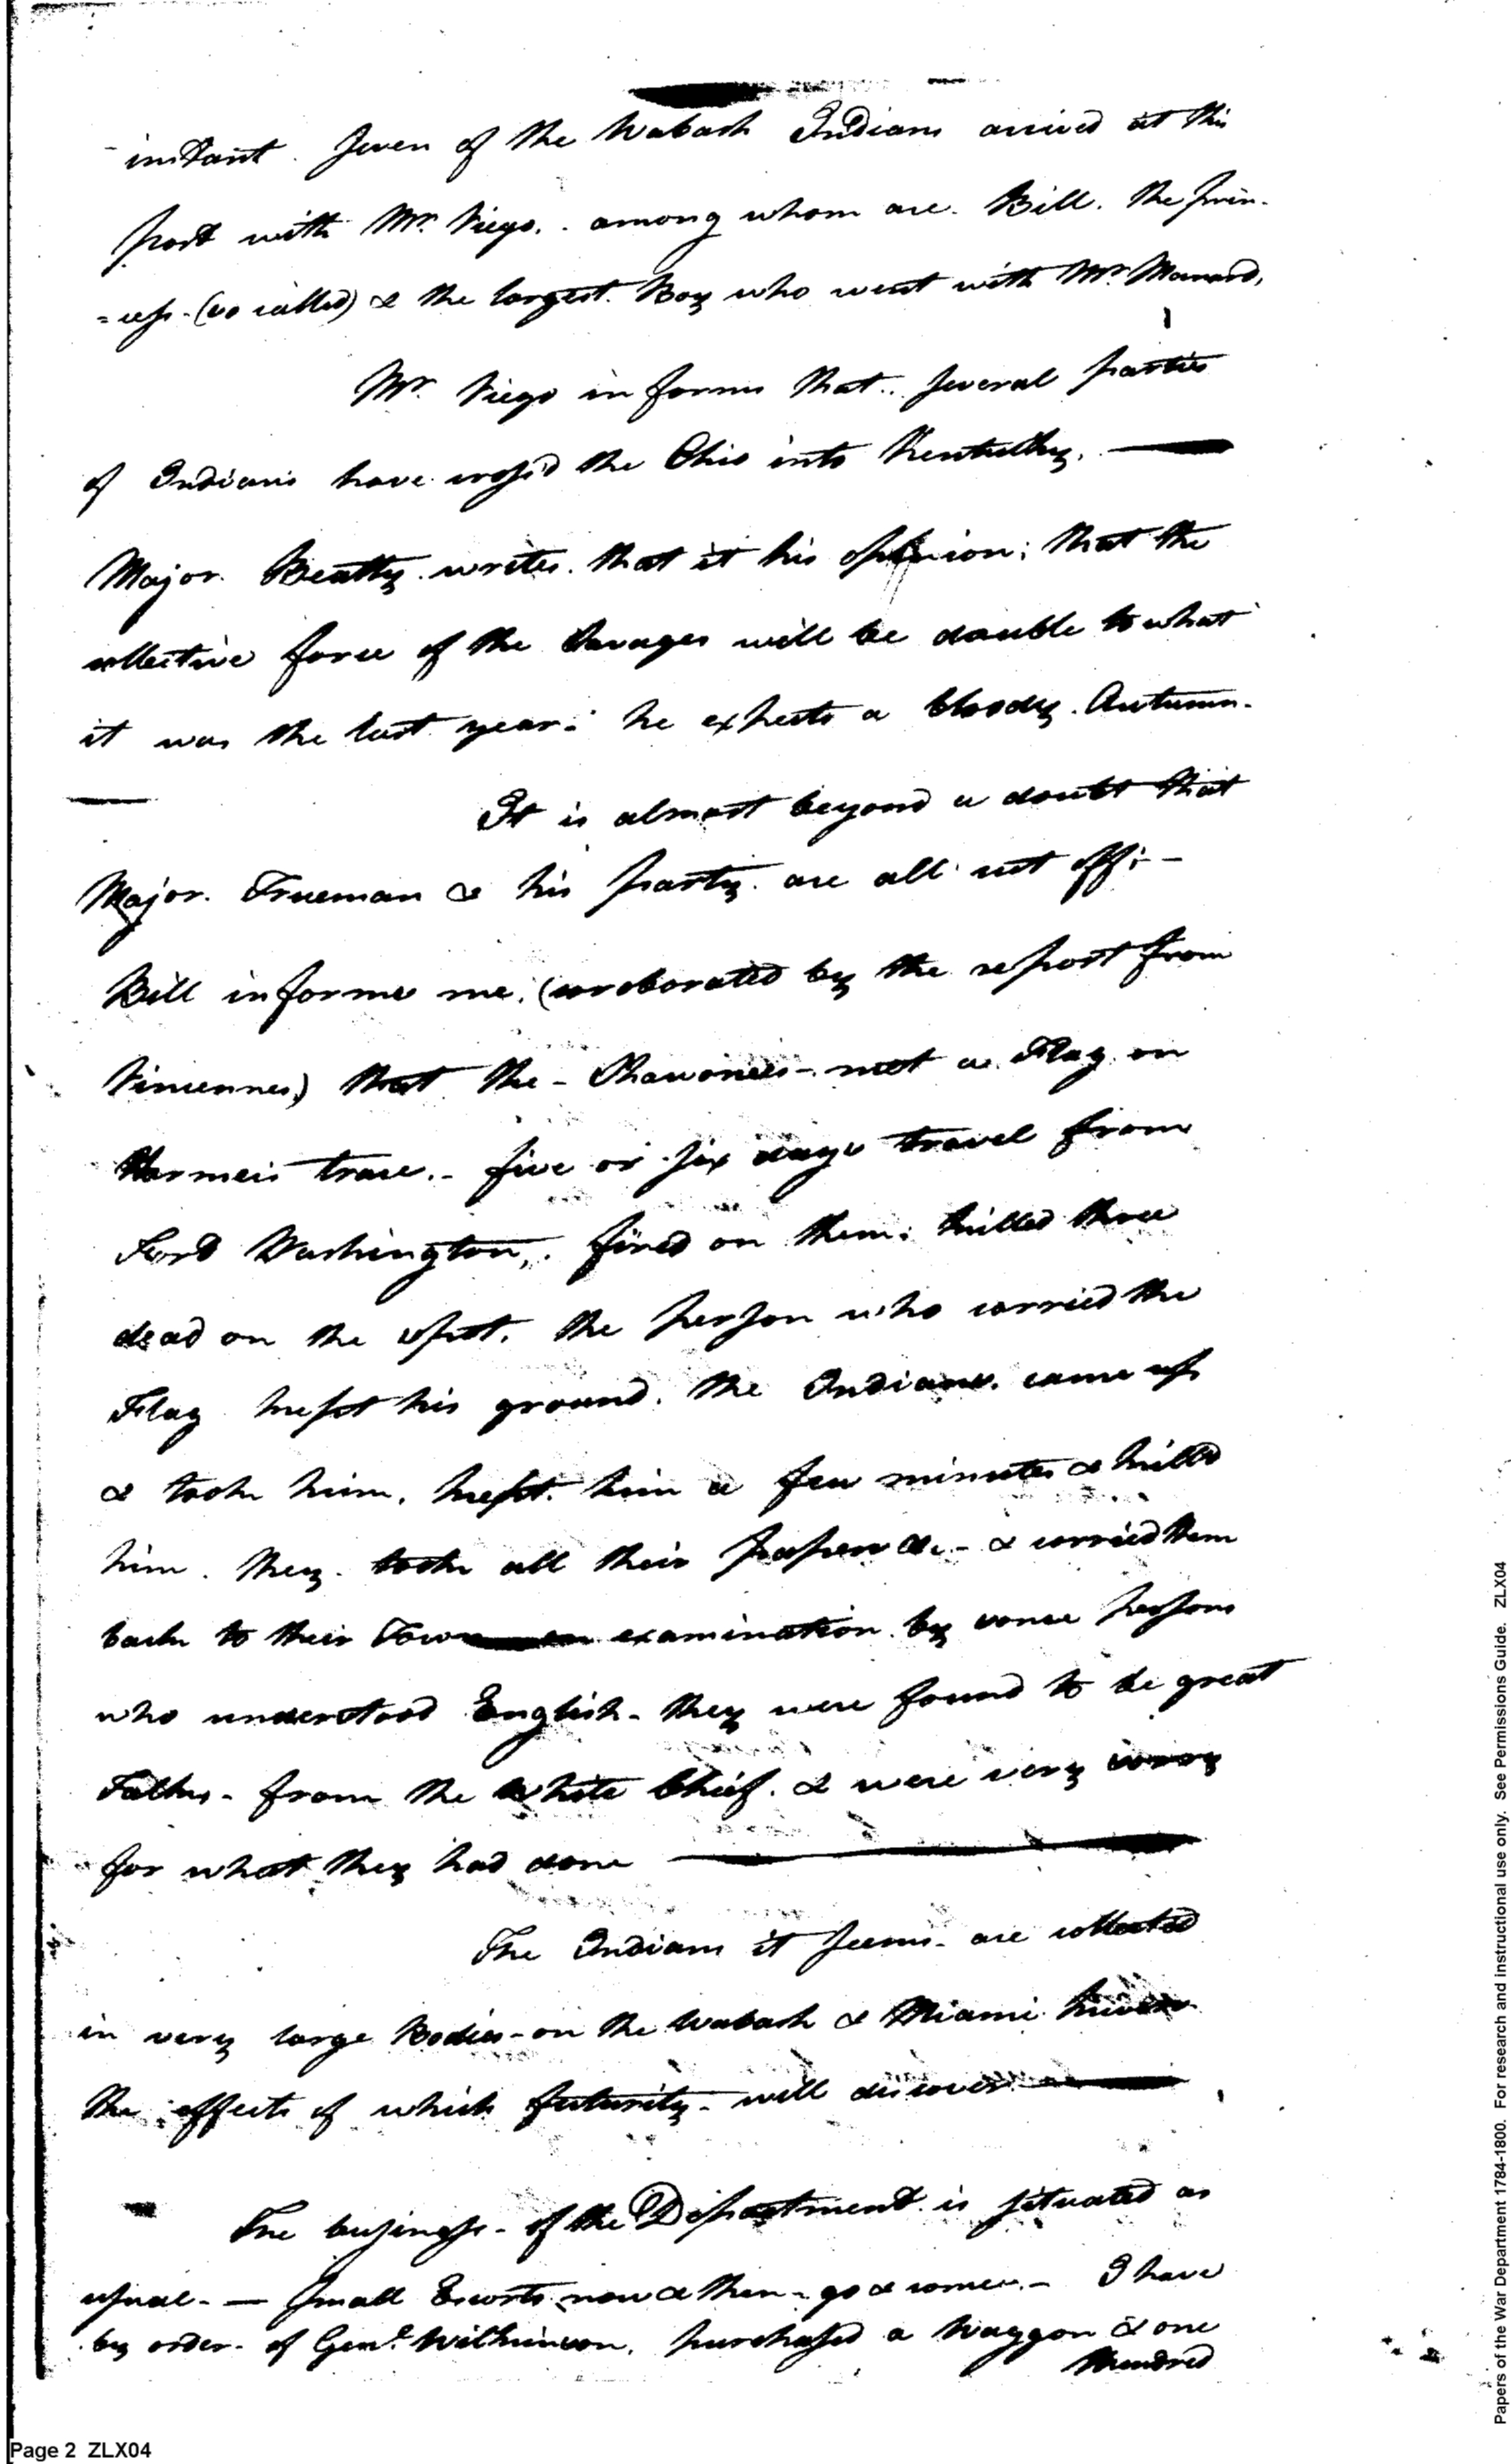 instant. Seven of the Wabash Indians arrived at this
post with Mr. Viego. among whom are. Bill. the prin-
=cess. (so called) & the largest. Boy who went with Mr.
Mr. Viego informs that.. several parties
of Indians have cross'd the Ohio into Kentucky.
Major. Beatty. writes. that it his opinion; that the
collective force of the Savages will be double to what
it was the last year: he expects a bloody. Autumn.
It is almost beyond a doubt that
Major. Trueman & his party. are all cut off:-
Bill informs me. (coroborated by the report from
Vincennes) that the - Shawonees - met a Flag on
Harmers trace. - five or six days travel from
Fort Washington,. fired on them. killed three
dead on the spot. the person who carried the
Flag kept his ground. the Indians. came up
& took him. kept. him a few minutes & killd
him. they. took all their papers &c - & carried them
back to their Town examination. by some persons
who understood English - they were found to be great
Talks - from the White Chief. & were very sorry
for what they had done
The Indians it seems - are collected
in very large Bodies - on the Wabash & Miami
the effects of which futurity - will discover
The business - of the Department. is situated as
usual - — small Escorts now & then - go & come. - I have
by order - of Genl. Wilkinson. purchased a Waggon & one
Hundred
Page 2 ZLX04
Papers of the War Department 1784-1800. For research and instructional use only. See Permissions Guide. ZLX04